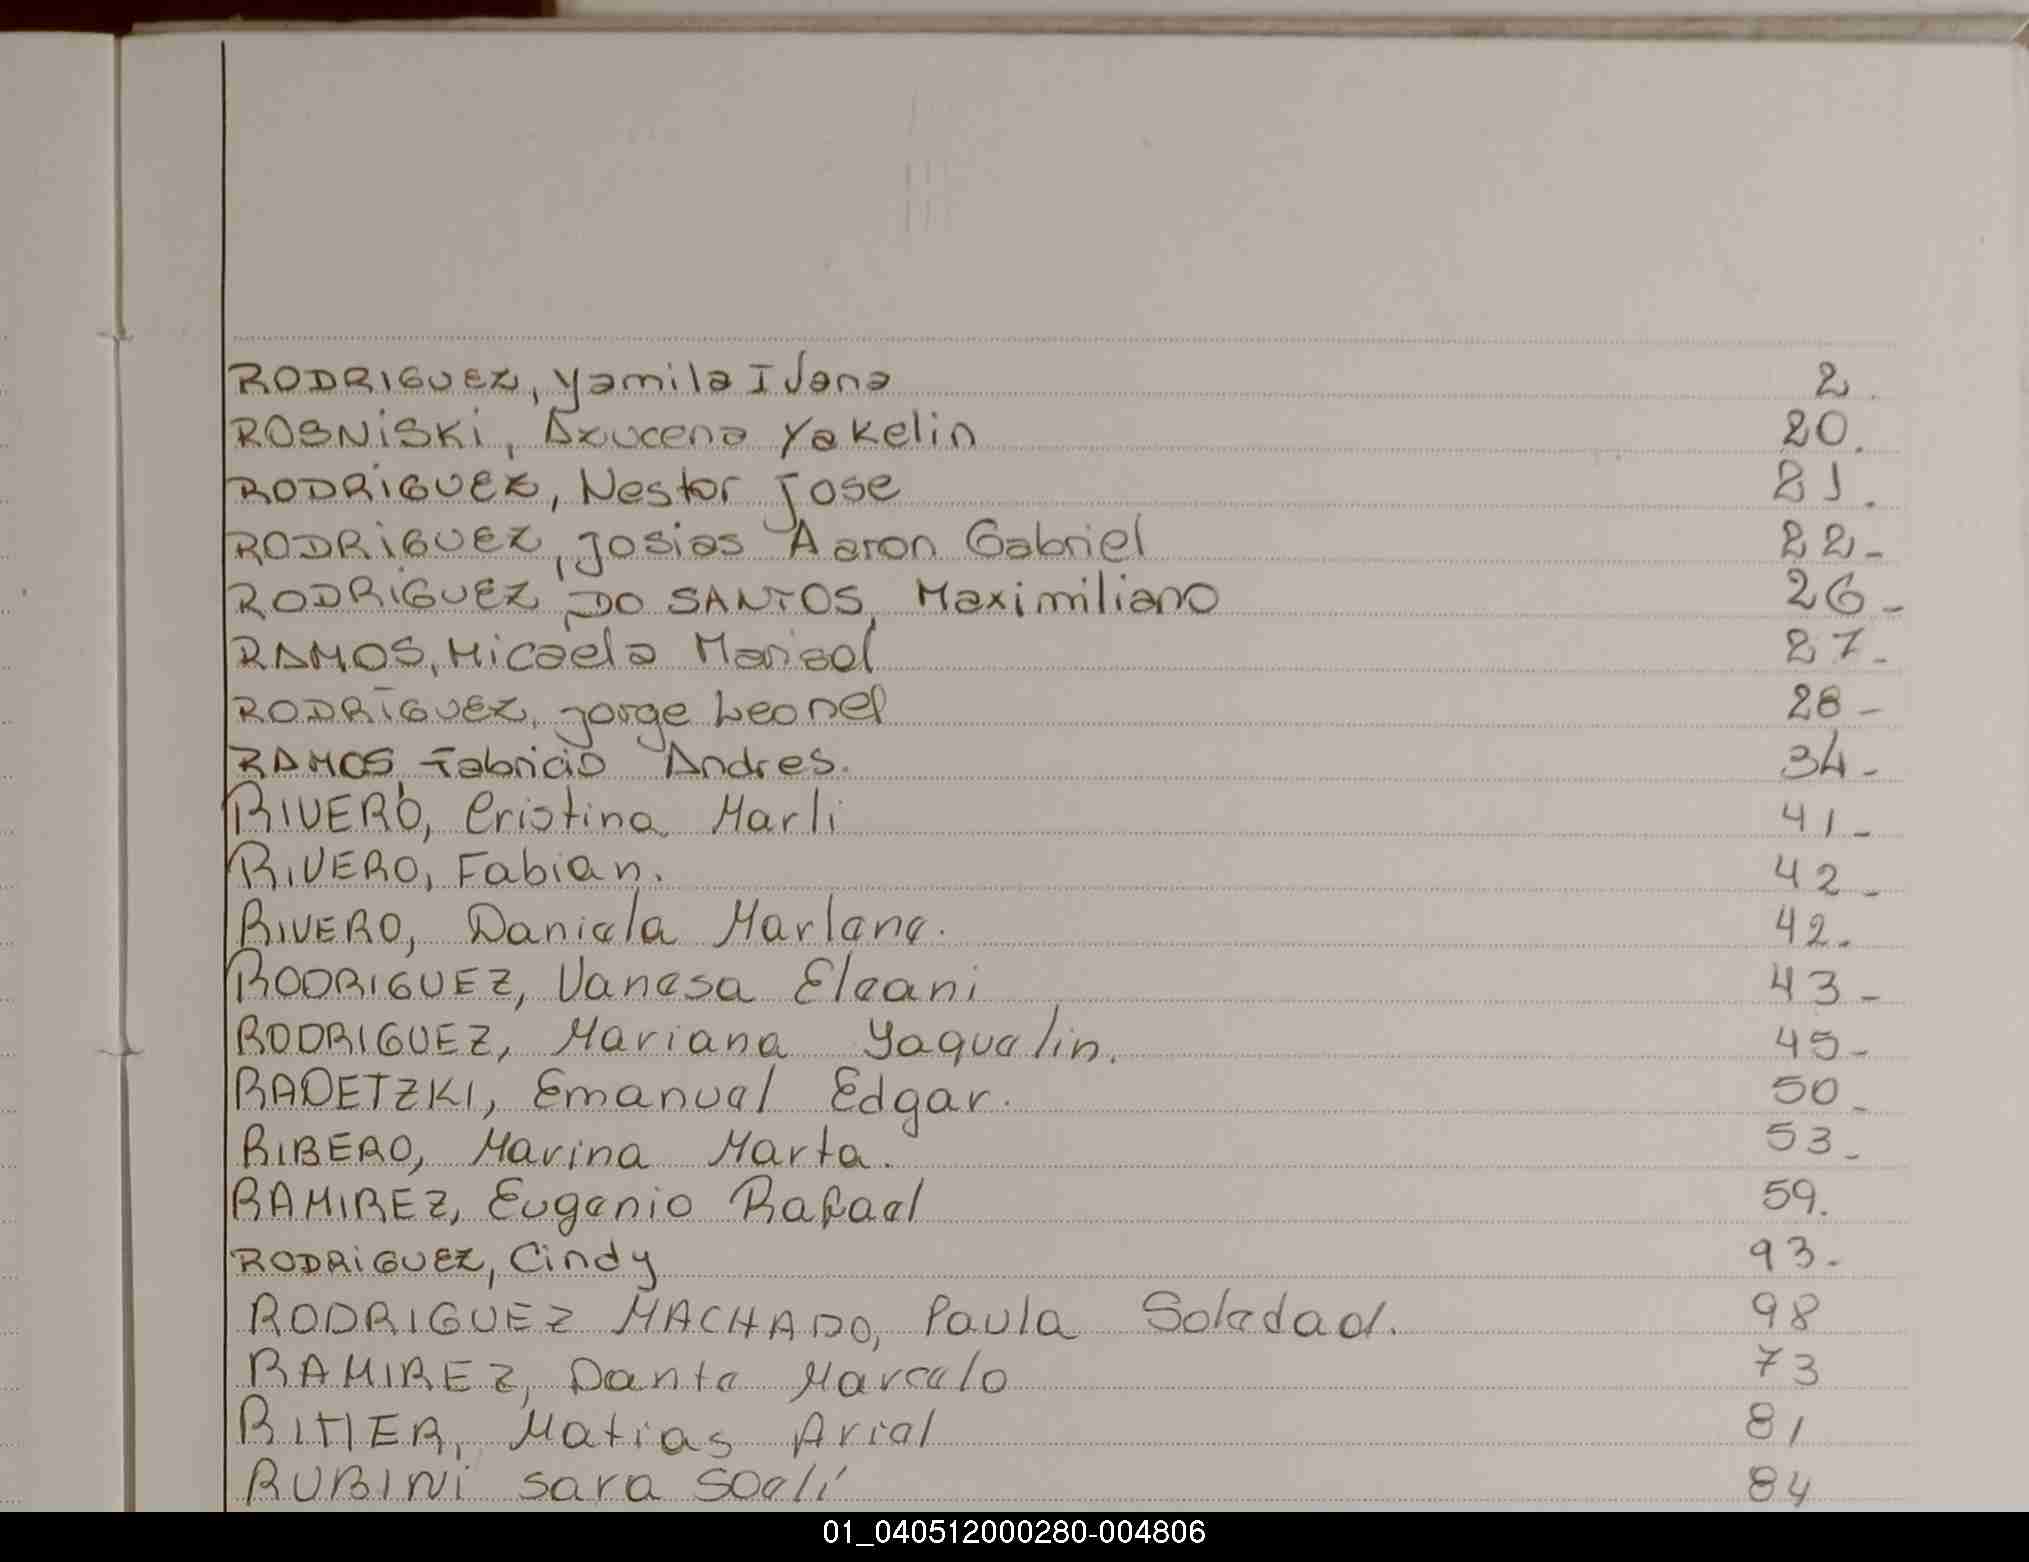 RODRIGUEZ, Yamila Ivana 2.
ROSNiSKi, Azucena Yakelin 20.
RODRiGUEZ, Nestor Jose 21.
RODRiGUEZ, Josias Aaron Gabriel 22-
RODRiGUEZ DO SANTOS, Maximiliano 26-
RAMOS, Micaela Marisol 27-
RODRIGUEZ, Jorge Leonel 28-
RAMOS, Fabricio Andres. 34-
RIVERO, Cristina Marli 41-
RIVERO, Fabian. 42-
RIVERO, Daniela Marlene. 42-
RODRIGUEZ, Vanesa Eleani 43-
RODRIGUEZ, Mariana Yaquelin. 45-
RADETZKI, Emanuel Edgar. 50-
RIBERO, Marina Marta. 53-
RAMIREZ, Eugenio Rafael 59.
RODRiGUEZ, Cindy 93-
RODRIGUEZ MACHADO, Paula Soledad. 98
RAMIREZ, Dante Marcelo 73
RITIER, Matias Ariel 81
RUBINi Sara Soelí 84
01_040512000280-004806